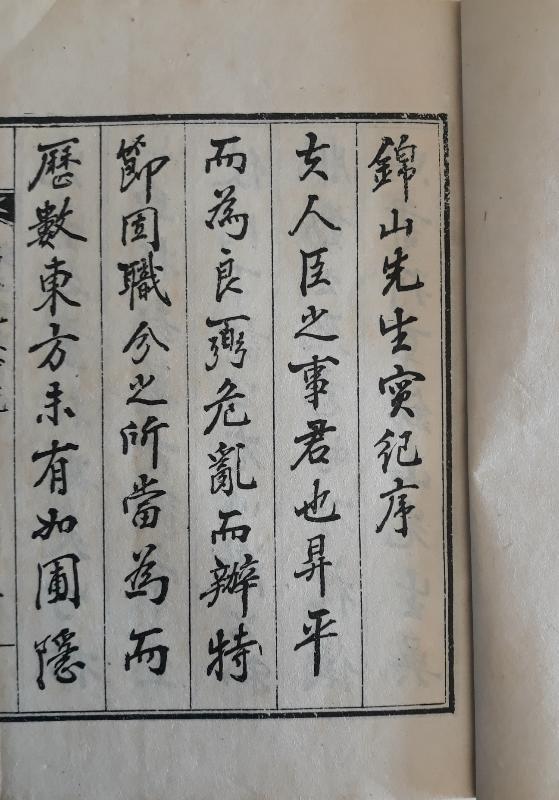 錦山先生實紀序
夫人臣之事君也昇平
而為良弼危亂而辦特
節固職分之所當為而
歷數東方未有如圃隱